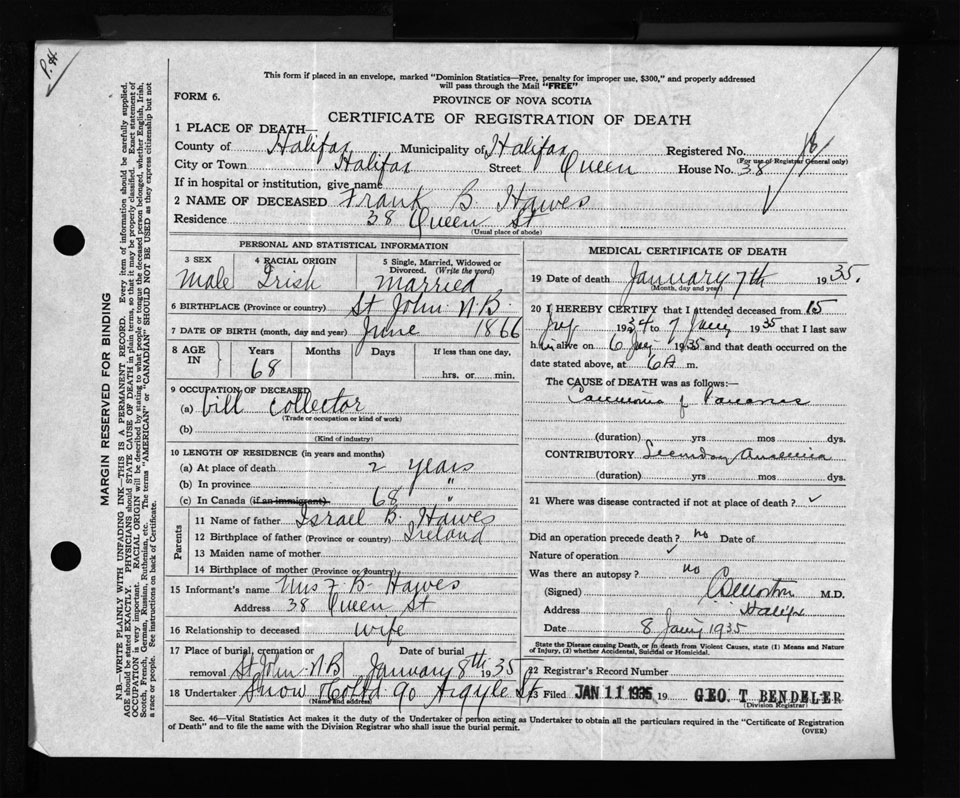 P.H.
This form if placed in an envelope, marked "Dominion Statistics—Free, penalty for improper use, $300," and properly addressed
will pass through the Mail "FREE"
FORM 6.
PROVINCE OF NOVA SCOTIA
CERTIFICATE OF REGISTRATION OF DEATH
1 PLACE OF DEATH—
County of Halifax Municipality of Halifax Registered No.
(For use of Registrar General only)
City or Town Halifax Street Queen House No. 38
If in hospital or institution, give name
2 NAME OF DECEASED Frank B. Hawes
Residence 38 Queen St
(Usual place of abode)
PERSONAL AND STATISTICAL INFORMATION
3 SEX 4 RACIAL ORIGIN 5 Single, Married, Widowed or Divorced. (Write the word)
Male Irish married
6 BIRTHPLACE (Province or country) St John N.B.
7 DATE OF BIRTH (month, day and year) June 1866
8 AGE IN Years Months Days If less than one day,
68 hrs. or min.
9 OCCUPATION OF DECEASED
(a) bill collector
(Trade or occupation or kind of work)
(b)
(Kind of industry)
10 LENGTH OF RESIDENCE (in years and months)
(a) At place of death 2 years
(b) In province "
(c) In Canada (if an immigrant) 68 "
Parents
11 Name of father Israel B. Hawes
12 Birthplace of father (Province or country) Ireland
13 Maiden name of mother
14 Birthplace of mother (Province or country)
15 Informant's name Mrs F. B. Hawes
Address 38 Queen St
16 Relationship to deceased wife
17 Place of burial, cremation or removal St John N.B. Date of burial January 8th 1935
18 Undertaker Snow & Co Ltd 90 Argyle St
(Name and address)
MEDICAL CERTIFICATE OF DEATH
19 Date of death January 7th 1935.
(Month, day and year)
20 I HEREBY CERTIFY that I attended deceased from 15
1934 to 7 Jany 1935 that I last saw
him alive on 6 Jany 1935 and that death occurred on the
date stated above, at 6 A m.
The CAUSE OF DEATH was as follows:—
Carcinoma of Pancreas
(duration) yrs mos dys.
CONTRIBUTORY Secondary Anaemia
(duration) yrs mos dys.
21 Where was disease contracted if not at place of death?
Did an operation precede death? no Date of
Nature of operation
Was there an autopsy? no
(Signed) M.D.
Address Halifax
Date 8 Jany 1935
State the Disease causing Death, or in death from Violent Causes, state (1) Means and Nature
of Injury, (2) whether Accidental, Suicidal or Homicidal.
22 Registrar's Record Number
23 Filed JAN 11 1935 19 GEO. T BENDELER
(Division Registrar)
Sec. 46—Vital Statistics Act makes it the duty of the Undertaker or person acting as Undertaker to obtain all the particulars required in the "Certificate of Registration
of Death" and to file the same with the Division Registrar who shall issue the burial permit.
(OVER)
MARGIN RESERVED FOR BINDING
N.B.—WRITE PLAINLY WITH UNFADING INK—THIS IS A PERMANENT RECORD. Every item of information should be carefully supplied.
AGE should be stated EXACTLY. PHYSICIANS should STATE CAUSE OF DEATH in plain terms, so that it may be properly classified. Exact statement of
OCCUPATION is very important. RACIAL ORIGIN will be described by stating to what people or tongue the deceased person belonged, whether English, Irish,
Scotch, French, German, Russian, Ruthenian, etc. The terms "AMERICAN" or "CANADIAN" SHOULD NOT BE USED as they express citizenship but not
a race or people. See instructions on back of Certificate.